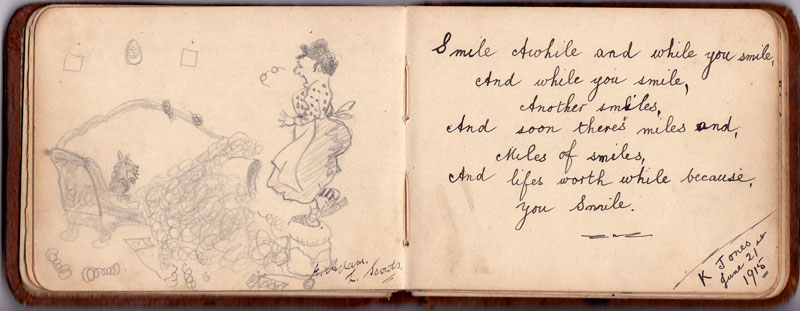 Smile Awhile and while you smile,
And while you smile,
Another smiles,
And soon theres miles and,
Miles of smiles,
And lifes worth while because,
you Smile.
K Jones
June 21st
1915